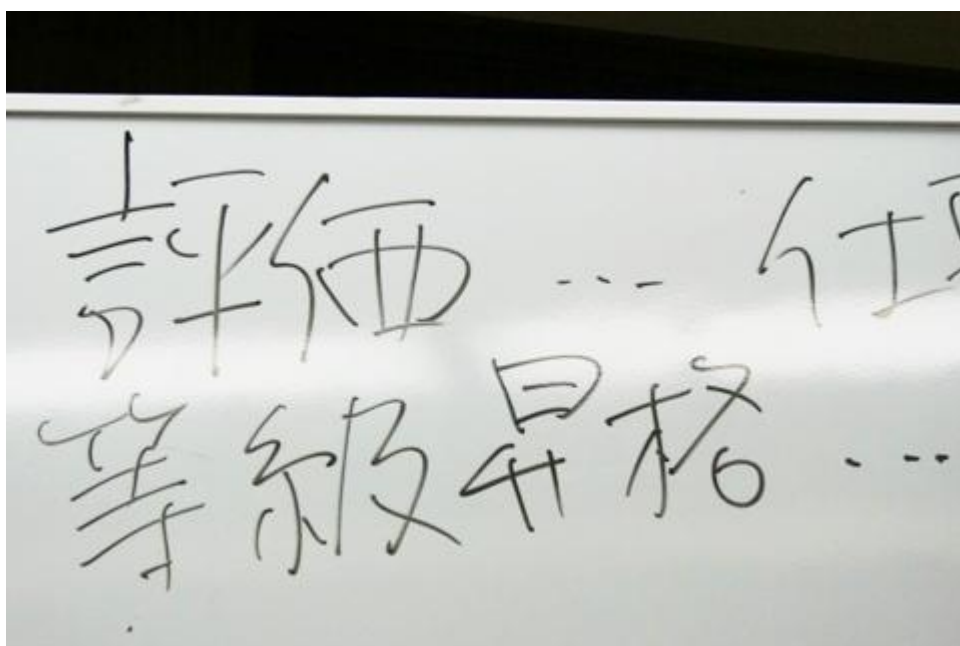 評価 … 仕
等級昇格 …